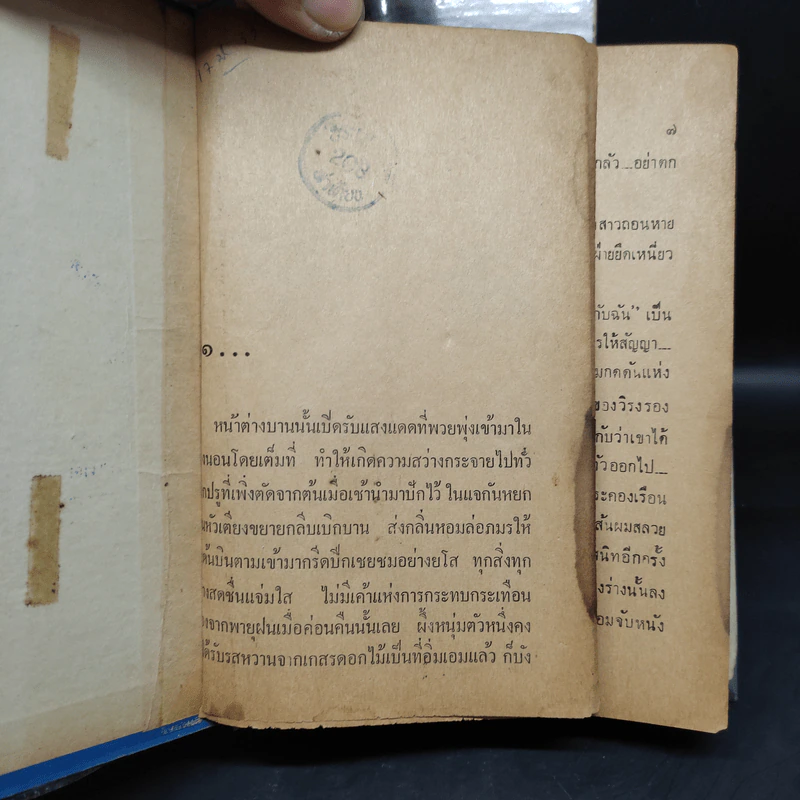 ๑...
หน้าต่างบานนั้นเปิดรับแสงแดดที่พวยพุ่งเข้ามาใน
งนอนโดยเต็มที่ ทำให้เกิดความสว่างกระจายไปทั่ว
กปรูที่เพิ่งตัดจากต้นเมื่อเช้านำมาปักไว้ ในแจกันหยก
นหัวเตียงขยายกลีบเบิกบาน ส่งกลิ่นหอมล่อภมรให้
ต้นบินตามเข้ามากรีดปีกเชยชมอย่างยโส ทุกสิ่งทุก
างสดชื่นแจ่มใส ไม่มีเค้าแห่งการกระทบกระเทือน
องจากพายุฝนเมื่อค่อนคืนนั้นเลย ผึ้งหนุ่มตัวหนึ่งคง
ได้รับรสหวานจากเกสรดอกไม้เป็นที่อิ่มเอมแล้ว ก็บัง
๗
กลัว....อย่าตก
สาวถอนหาย
ฝ่ายยึดเหนี่ยว
กับฉัน" เป็น
รให้สัญญา....
มกดดันแห่ง
ของวิรงรอง
กับว่าเขาได้
ตัวออกไป....
ระคองเรือน
ส้นผมสลวย
สนิทอีกครั้ง
งร่างนั้นลง
อมจับหนัง